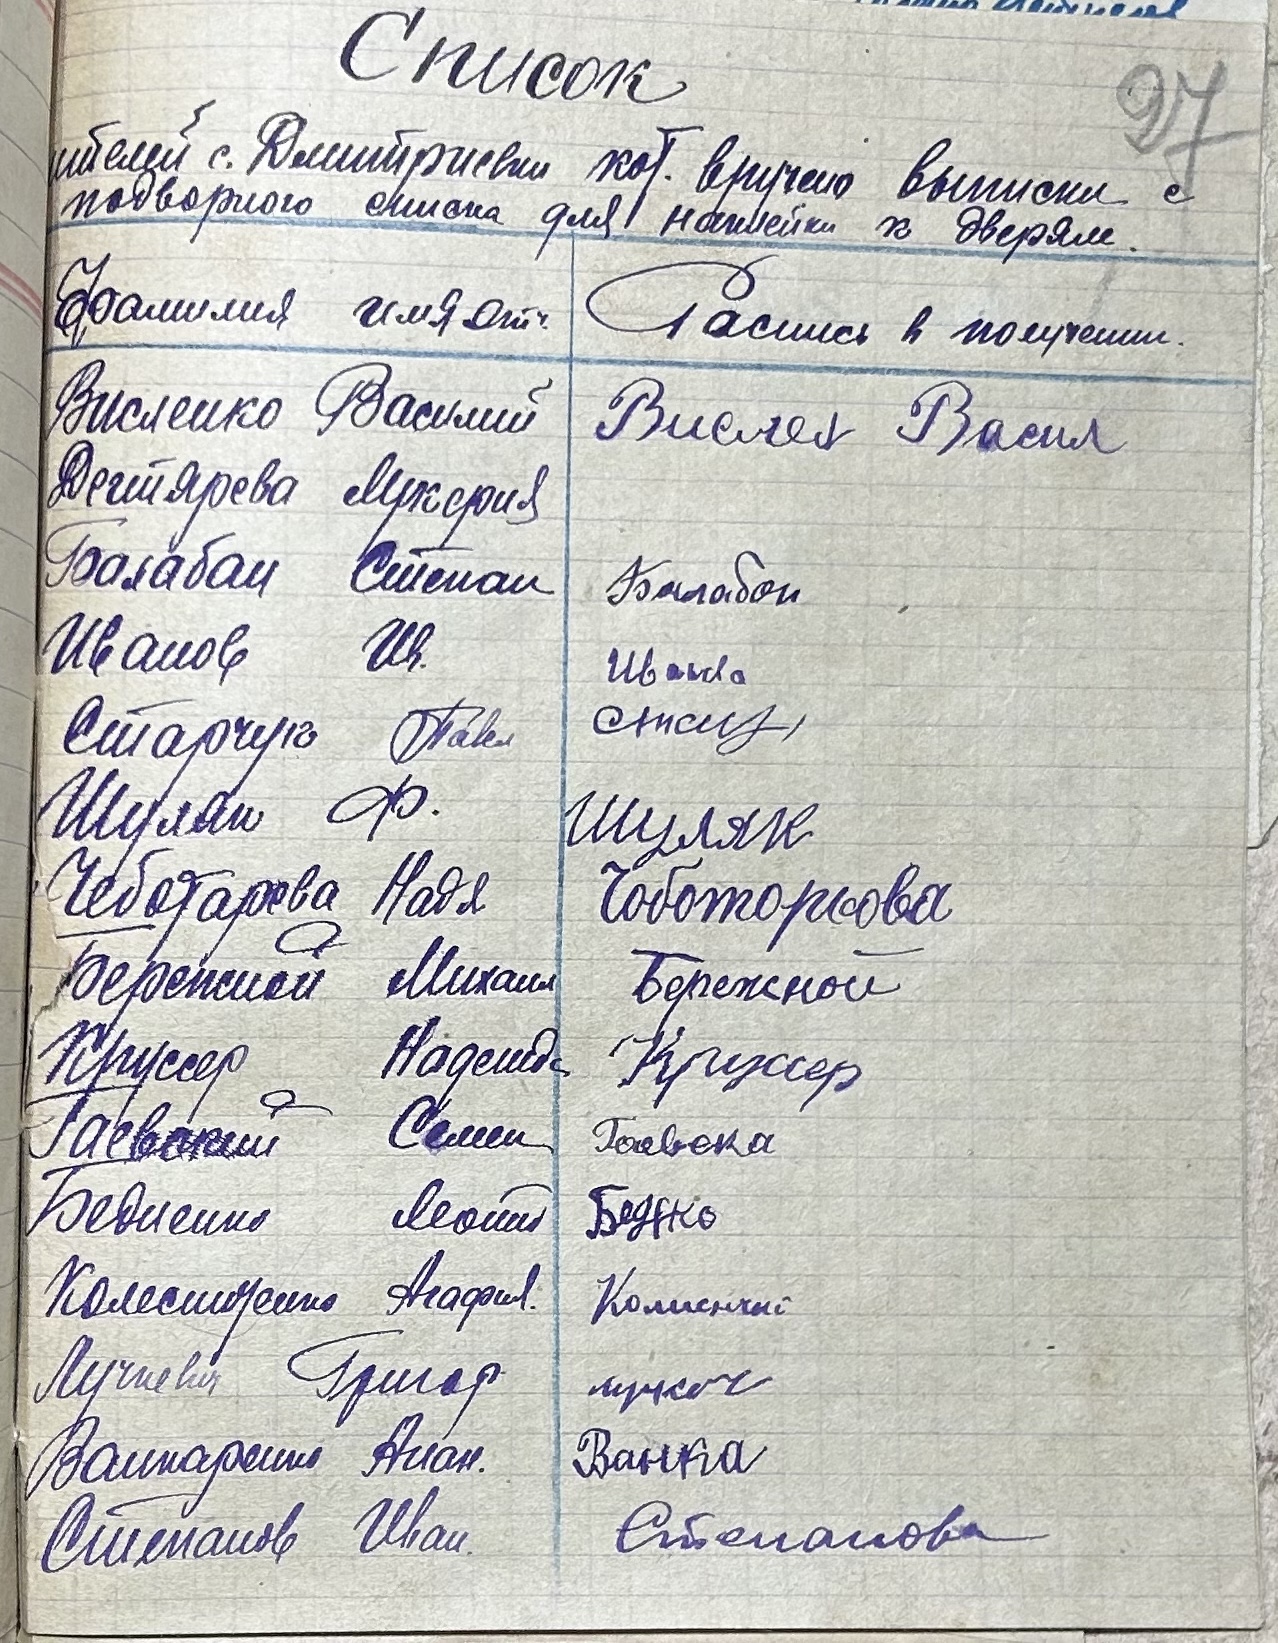 Список
27
ителей с. Дмитриевки кот. вручено выписки с
подворного списка для наклейки к дверям.
Фамилия имя отч. Распись в получении.
Висленко Василий Вислен Васил
Дегтярева Лукерия
Балабан Степан Балабон
Иванов Ив. Иванова
Старчук Павел
Шуляк Ф. Шуляк
Чеботарева Надя Чоботорьова
Бережной Михаил Бережной
Круссер Надежда Круссер
Гаевский Семен Гаевска
Бедненко Леонт Бедko
Колесниченко Агафия.
Лучкевич Григор
Ванжаренко Анан. Ванжа
Степанов Иван. Степанова